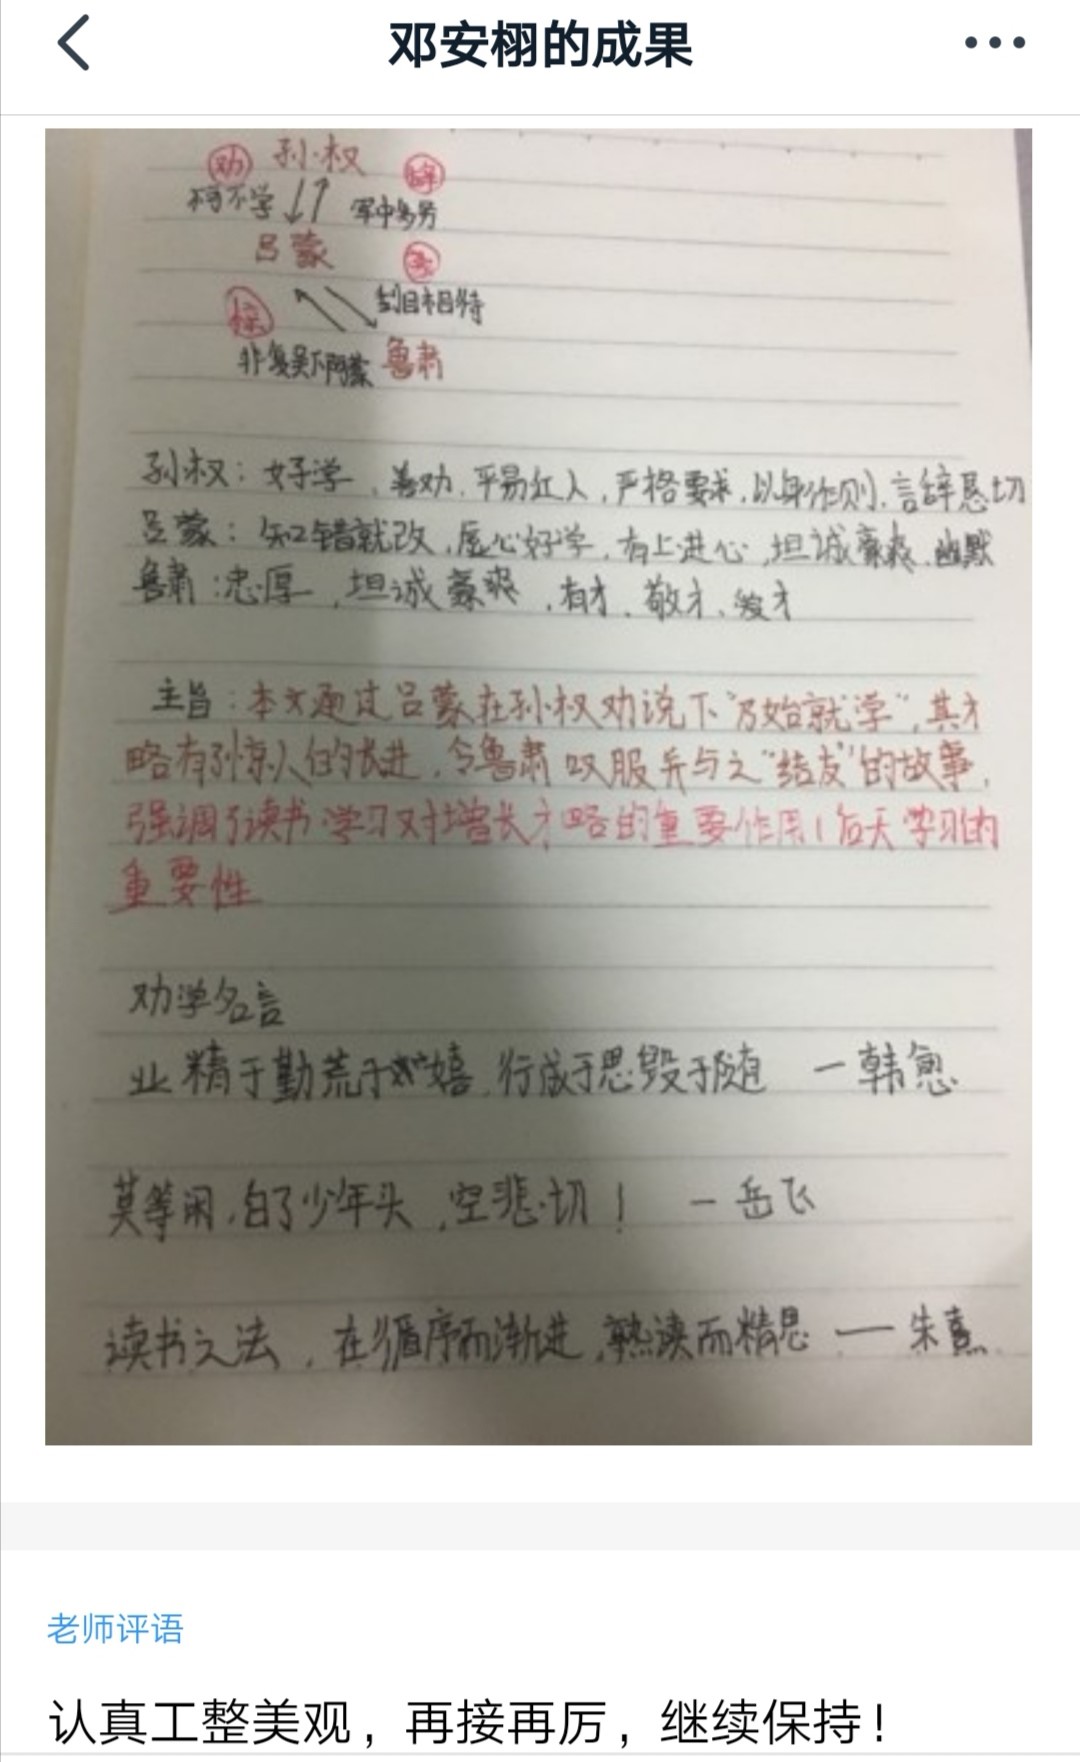 邓安栩的成果
劝 孙权 辞
不可不学 军中多务
吕蒙
刮目相待
非复吴下阿蒙 鲁肃
孙权：好学、善劝、平易近人，严格要求，以身作则、言辞恳切
吕蒙：知错就改，虚心好学，有上进心，坦诚豪爽、幽默
鲁肃：忠厚、坦诚豪爽，有才、敬才、爱才
主旨：本文通过吕蒙在孙权劝说下“乃始就学”，其才
略有了惊人的长进，令鲁肃叹服并与之“结友”的故事，
强调了读书学习对增长才略的重要作用/后天学习的
重要性
劝学名言
业精于勤荒于嬉，行成于思毁于随 一韩愈
莫等闲，白了少年头，空悲切！ 一岳飞
读书之法，在循序而渐进，熟读而精思 —朱熹
老师评语
认真工整美观，再接再厉，继续保持！